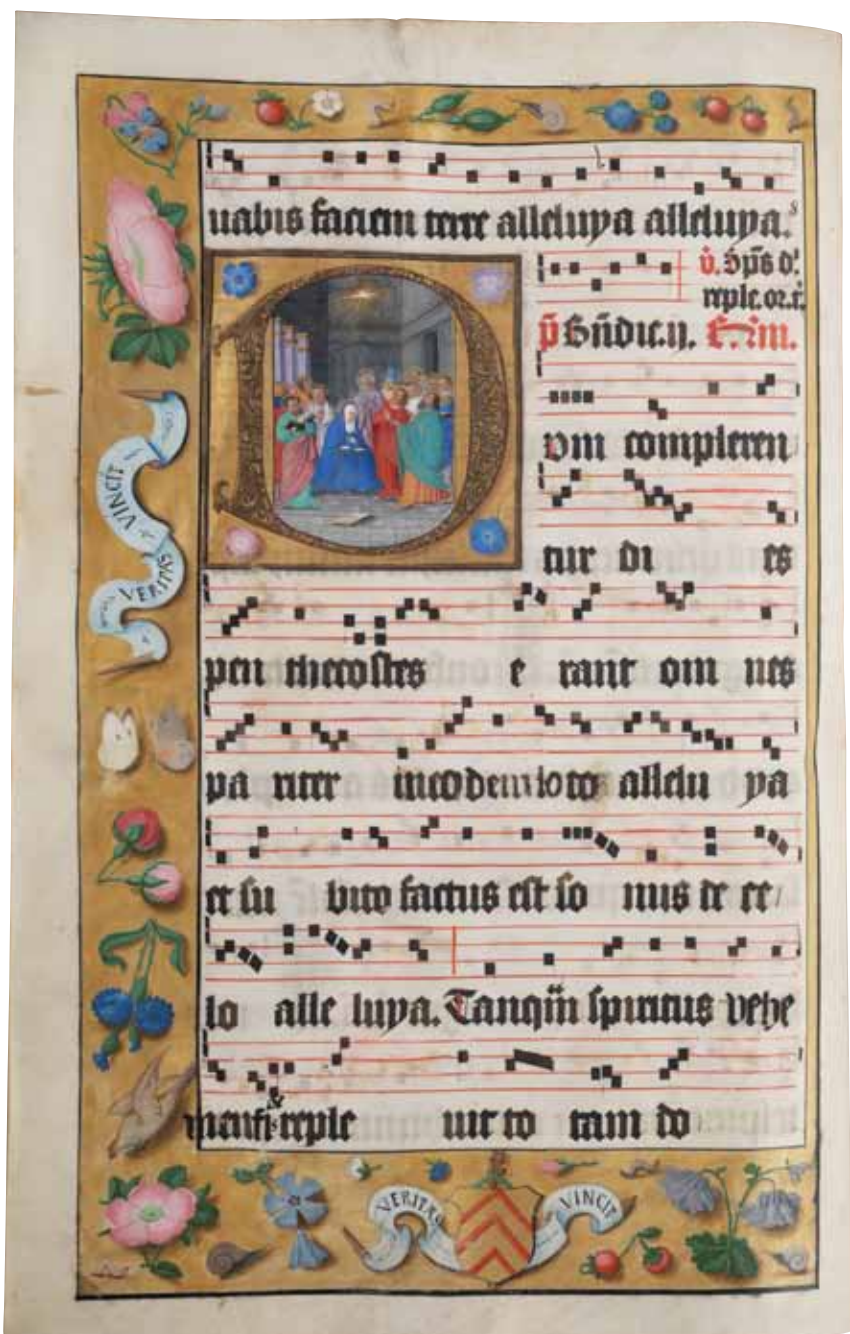 uabis faciem terre alleluya alleluya.
v̇. Sp̄s ḋ.
reple. or. t.
p̄ Bn̄dic. ij.
D
um compleren
tur di es
pen thecostes e rant om nes
pa riter in eodem loco allelu ya
et su bito factus est so nus de ce
lo alle luya. Tanqm̄ spiritus vehe
mentis & reple uit to tam do
VINCIT
VERITAS
VERITAS
VINCIT